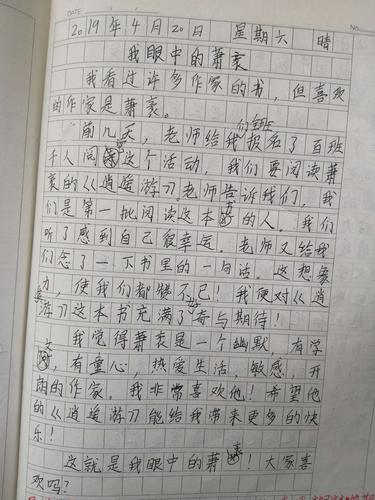 DATE
No.
2019年4月20日 星期六 晴
我眼中的萧袤
我看过许多作家的书,但喜欢
的作家是萧袤。
前几天,老师给我们全班报名了百班
千人阅读这个活动,我们要阅读萧
袤的《逍遥游》。老师告诉我们,我
们是第一批阅读这本书的人。我们
听了感到自己很幸运。老师又给我
们念了一下书里的一句话。这想象
力,使我们都赞不已!我便对《逍
遥游》这本书充满了好奇与期待!
我觉得萧袤是一个幽默,有学
文,有童心,热爱生活,敏感,开
朗的作家。我非常喜欢他!希望他
的《逍遥游》能给我带来更多的快
乐!
这就是我眼中的萧袤!大家喜
欢吗?